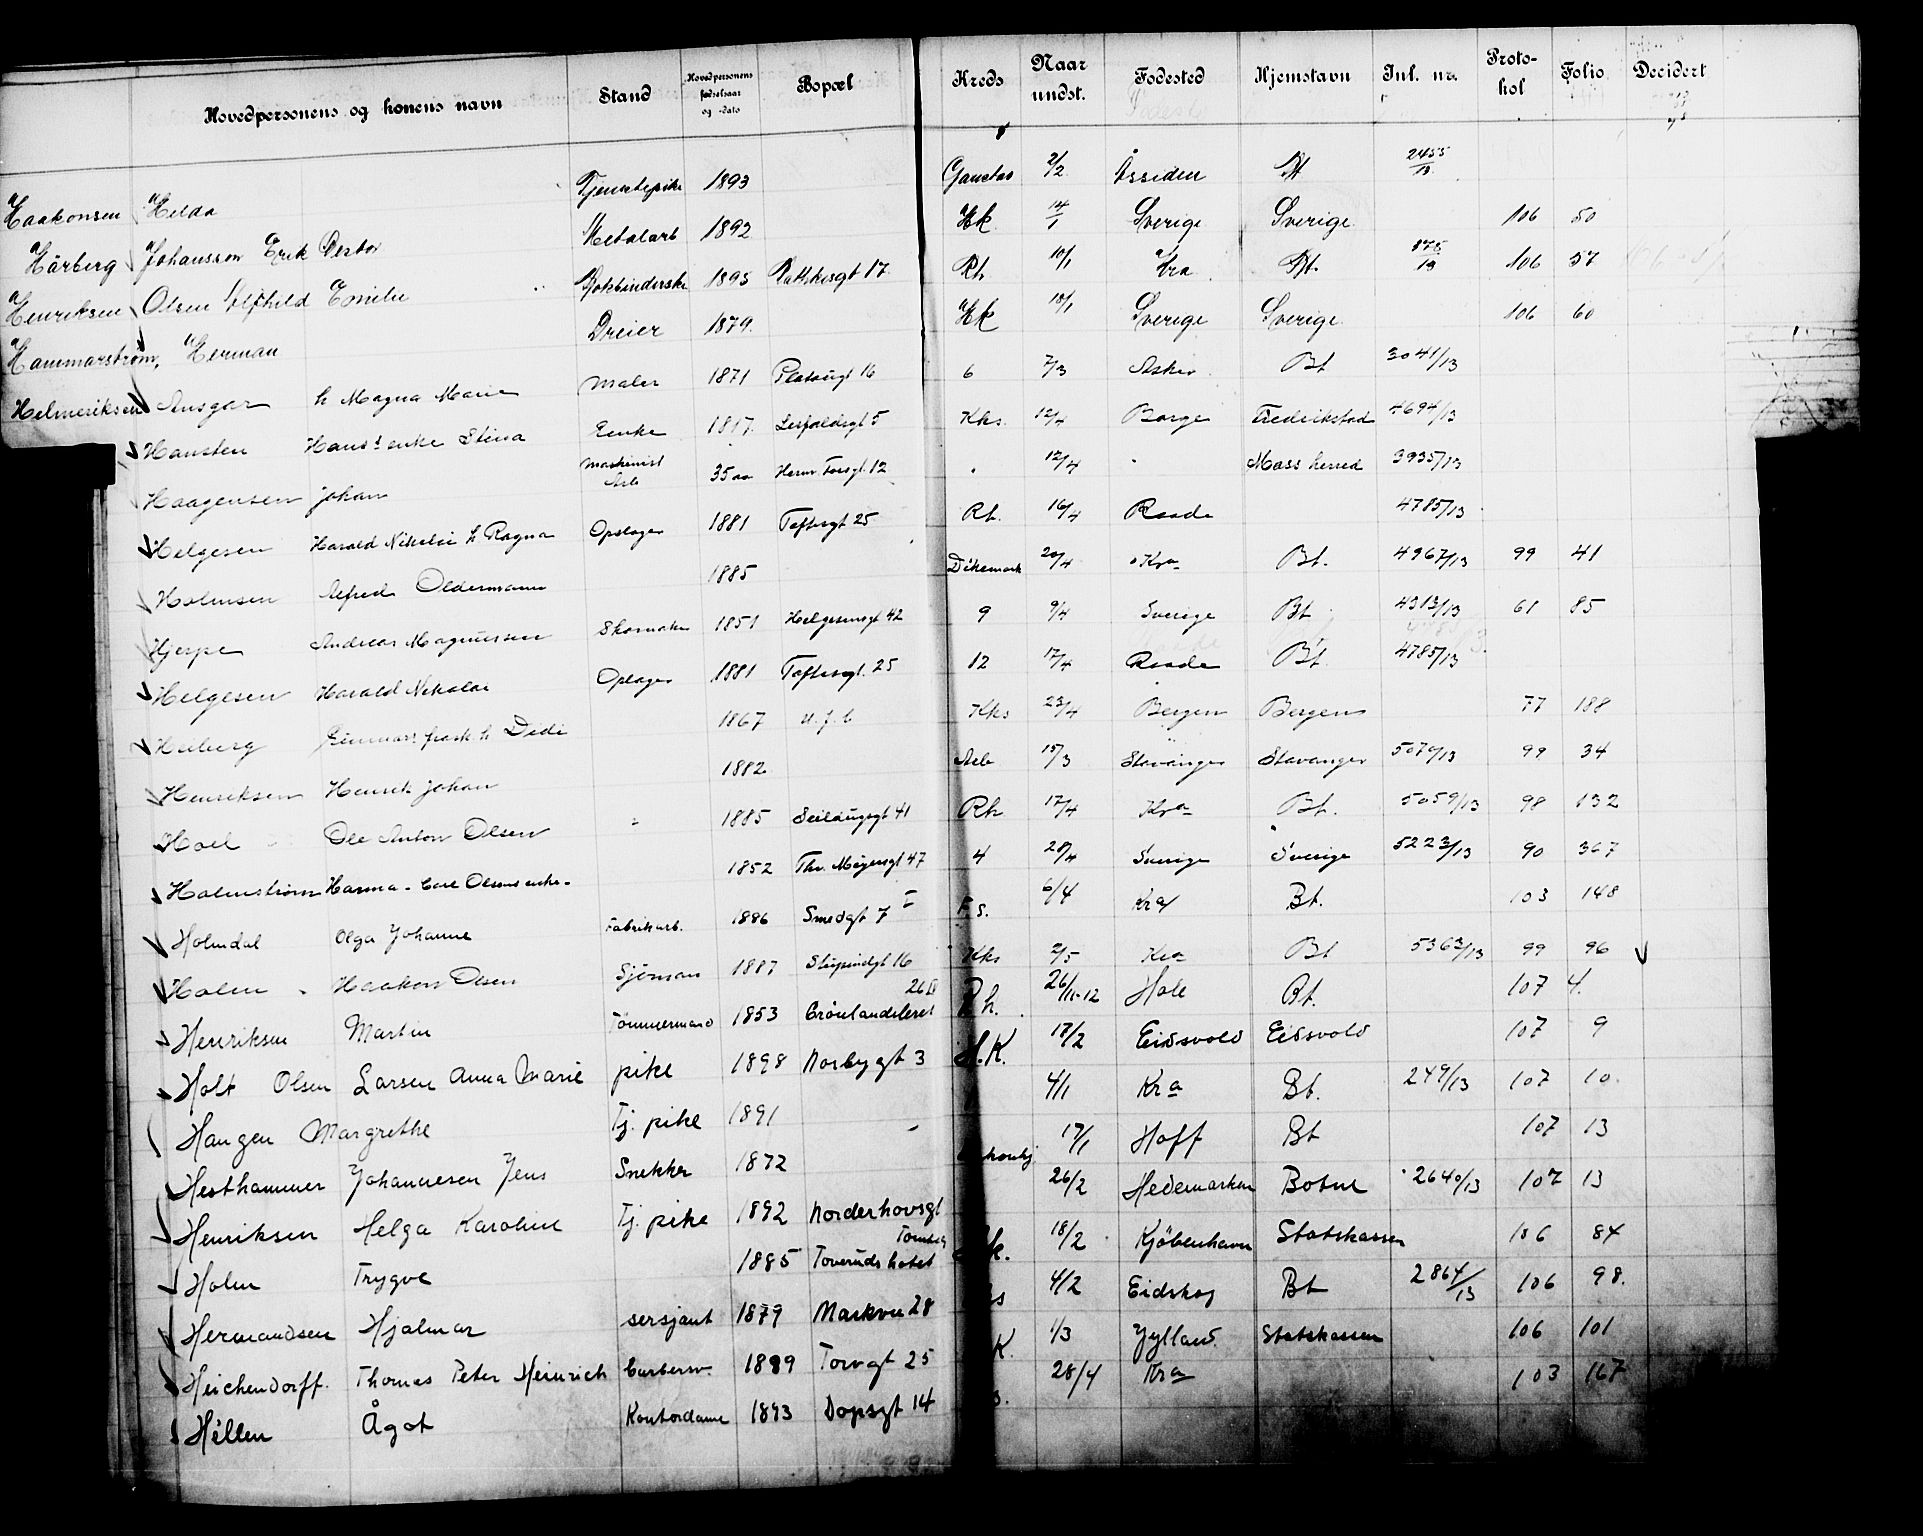 Hovedpersonens og konens navn Stand Hovedpersonens fødselsaar og -dato Bopæl Kreds Naar undst. Fødested Hjemstavn Inl. nr. Proto-kol Folio Decidert
Haakonsen Helda Tjenestepike 1893 2/2 Åssiden Bt 2455/13
Hårberg Johansson Erik Metalarb 1892 Hk 14/1 Sverige Sverige 106 50
Henriksen Olsen Alfhild Emilie Bokbinderske 1895 17 Rh 10/1 Kra Bt. 175/13 106 57
Hammarstrøm, Herman Dreier 1879. Hk 10/1 Sverige Sverige 106 60
Helmeriksen Ansgar h Magna Marie Maler 1871 Platougt 16 6 7/3 Asker Bt 3041/13
Hansten Hans' enke Stina Enke 1817 5 Kks 12/4 Borge Fredrikstad 4694/13
Haagensen Johan Maskinist Aeb 35 aar Herm. Fossgt. 12 12/4 Moss herred 3935/13
Helgesen Harald Nikolai h Ragna Opslager 1881 Toftesgt 25 Rh. 16/4 Raade 4785/13
Holmsen Alfred Oldermann 1885 Dikemark 20/4 Kra Bt. 4967/13 99 41
Hjerpe Andreas Magnussen Skomaker 1851 Helgesensgt 42 9 9/4 Sverige Bt 4313/13 61 85
Helgesen Harald Nikolai Oplager 1881 Toftesgt. 25 12 17/4 Raade Bt 4785/13
Heiberg Gunnars frask. h Didi 1867 u. f. b Kks 23/4 Bergen Bergen 77 188
Henriksen Henrik Johan 1882 Aeb 15/3 Stavanger Stavanger 5070/13 99 34
Hoel Ole Anton Olsen 1885 Seildugsgt 41 Rh 17/4 Kra Bt. 5059/13 98 132
Holmstrøm Hanna - Carl Olsens enke - 1852 Thv. Meyersgt 47 4 20/4 Sverige Sverige 5223/13 90 367
Holmdal Olga Johanne Fabrikarb. 1886 Smedgt 7 I F.S. 6/4 Kra Bt. 103 148
Holm - Haakon Olsen Sjömann 1887 Stupindgt 16 Kks 2/5 Kra Bt 5363/13 99 96
Henriksen Martin Tömmermand 1853 Grönlandsleret 26 II Rh. 26/11-12 Hole Bt. 107 4.
Holt Olsen Larsen Anna Marie pike 1898 Norbygt 3 H.K. 18/2 Eidsvold Eidsvold 107 9
Haugen Margrethe Tj. pike 1891 4/1 Kra Bt. 249/13 107 10.
Hesthammer Johannesen Jens Snekker 1872 17/1 Hoff Bt 107 13
Henriksen Helga Karoline Tj. pike 1892 Norderhovsgt 26/2 Hedemarken Botne 2640/13 107 13
Holm Trygve 1885 Toveruds hotel k. 18/2 Kjöbenhavn Statskassen 106 84
Hermandsen Hjalmar sersjant 1879 Markvei 28 s 4/2 Eidskog Bt 2864/13 106 98.
Heichendorff. Thomas Peter Heinrich Garbersv. 1889 Torvgt 25 K. 1/3 Jylland Statskassen 106 101
Héllen Ågot Kontordame 1893 Dopsgt 14 28/4 Kra 103 167